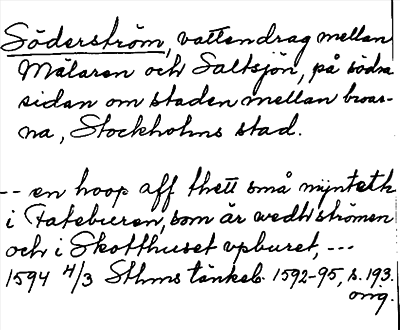 Söderström, vattendrag mellan
Mälaren och Saltsjön, på södra
sidan om staden mellan broar-
na, Stockholms stad.
-- en hoop aff thett små mÿnteth
i Fateburen, som är wedh strömen
och i Skotthuset vpburet, ---
1594 4/3 Sthms tänkeb. 1592-95, s. 193.
omg.